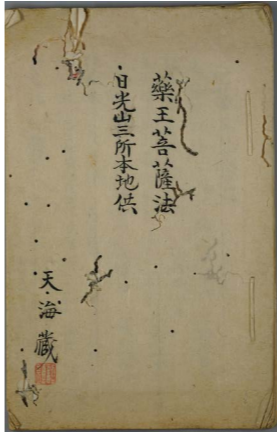 藥王菩薩法
日光山三所本地供
天海藏